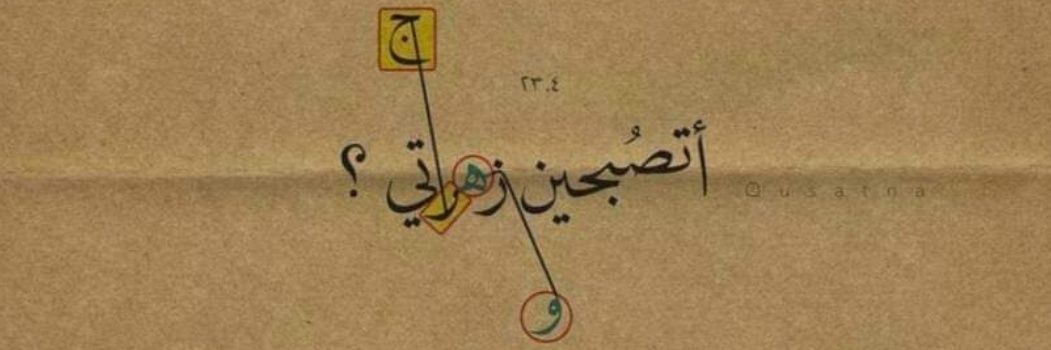 ج
٢٣.٤
أتصُبحين زهرتي ؟
@usatna
و